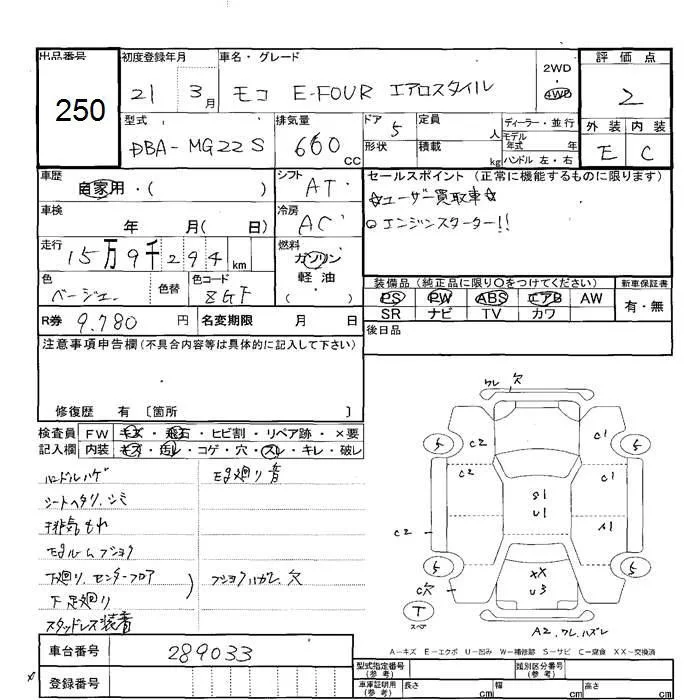 出品番号 初度登録年月 車名・グレード 評価点
250
21 3月 モコ E-FOUR エアロスタイル
2WD
4WD
2
型式 排気量 ドア 定員 ディーラー・並行 外装 内装
DBA-MG22S 660 CC 5 人
モデル年式 年
形状 積載 kg ハンドル 左・右
E C
車歴 シフト セールスポイント (正常に機能するものに限ります)
自家用・( ) AT
☆ユーザー買取車☆
車検 冷房
年 月( 日) AC
○エンジンスターター!!
走行 燃料
15万9千294km ガソリン
軽油
( )
色 色替 色コード
ベージュ ZGF
装備品 (純正品に限り○をつけてください) 新車保証書
PS PW ABS エアB AW 有・無
SR ナビ TV カワ
R券 9.780 円 名変期限 月 日
後日品
注意事項申告欄(不具合内容等は具体的に記入して下さい)
修復歴 有 〔箇所 〕
検査員 FW キズ・飛石・ヒビ割・リペア跡・×要
記入欄 内装 キズ・汚レ・コゲ・穴・スレ・キレ・破レ
ハンドルハゲ Eg廻り音
シートヘタリ、シミ
排気もれ
Egルームフショク
下廻り、センターフロア ) フショクハガレ、穴
下足廻り
スタッドレス装着
ワレ 穴
5 C2 C1 5
C2 C1
S1
U1
C2 A1
5 XX 5
U3
C穴
T
スペア
A2、ワレ、ハズレ
A-キズ E-エクボ U-凹み W-補修跡 S-サビ C-腐食 XX-交換済
車台番号 289033
登録番号
型式指定番号(参考) 類別区分番号(参考)
車庫証明用(参考) 長さ cm 幅 cm 高さ cm